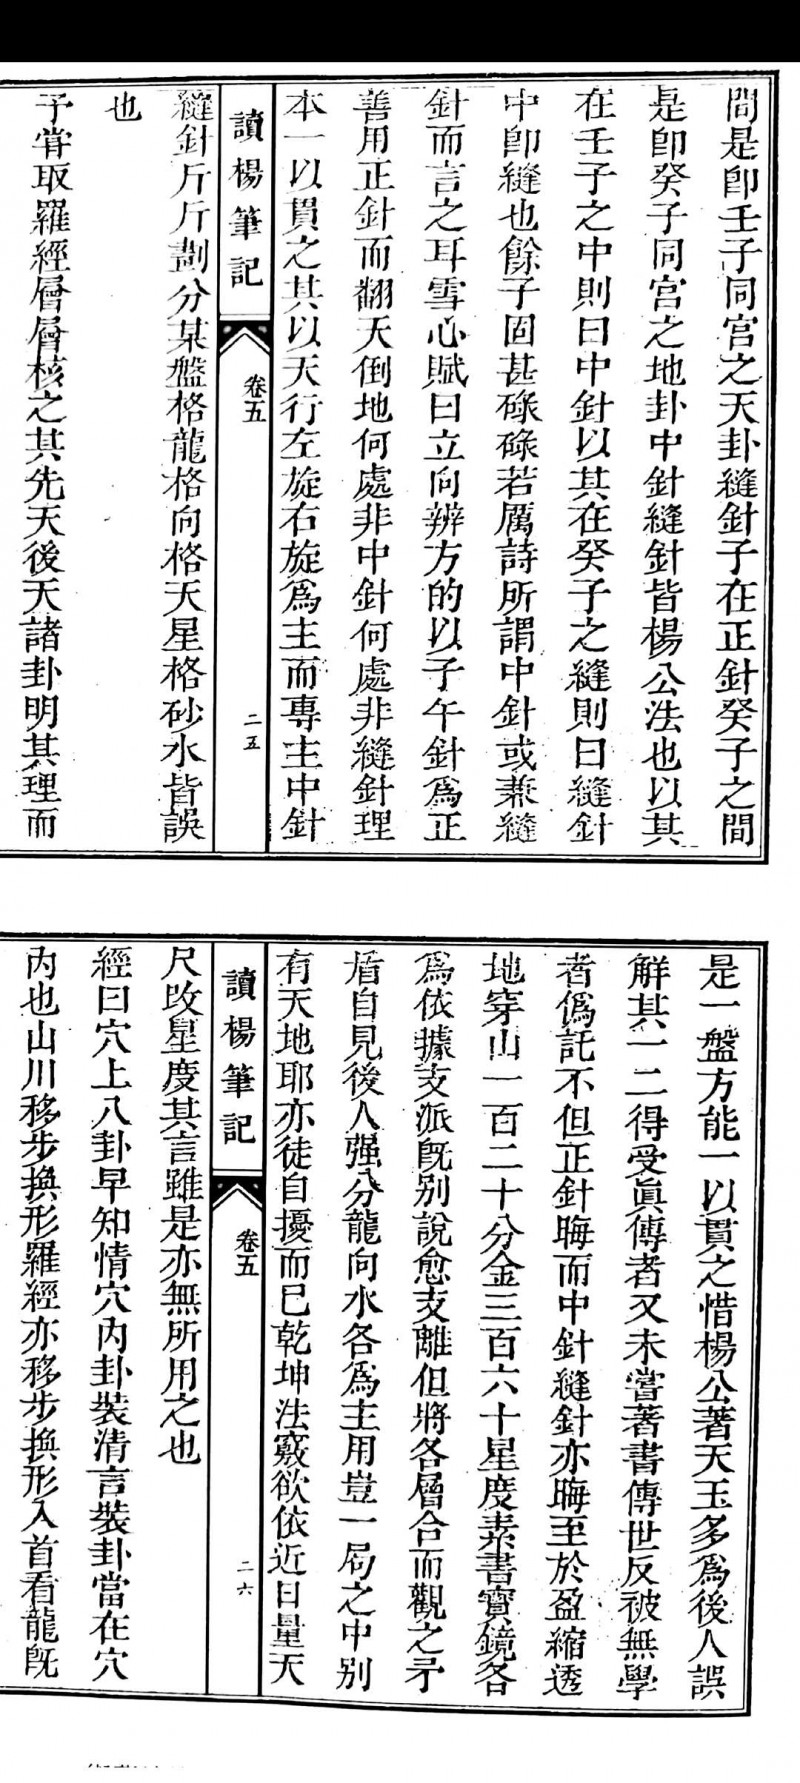 間是卽壬子同宮之天卦縫針子在正針癸子之間
是卽癸子同宮之地卦中針縫針皆楊公法也以其
在壬子之中則曰中針以其在癸子之縫則曰縫針
中卽縫也餘子固甚碌碌若厲詩所謂中針或兼縫
針而言之耳雪心賦曰立向辨方的以子午針爲正
善用正針而翻天倒地何處非中針何處非縫針理
本一以貫之其以天行左旋右旋爲主而專主中針
讀楊筆記
卷五
二五
縫針斤斤劃分某盤格龍格向格天星格砂水皆誤
也
予嘗取羅經層層核之其先天後天諸卦明其理而
是一盤方能一以貫之惜楊公著天玉多爲後人誤
解其一二得受眞傳者又未嘗著書傳世反被無學
者僞託不但正針晦而中針縫針亦晦至於盈縮透
地穿山一百二十分金三百六十星度素書寶鏡各
爲依據支派旣别說愈支離但將各層合而觀之矛
盾自見後人强分龍向水各爲主用豈一局之中别
有天地耶亦徒自擾而已乾坤法竅欲依近日量天
讀楊筆記
卷五
二六
尺改星度其言雖是亦無所用之也
經曰穴上八卦早知情穴內卦裝清言裝卦當在穴
內也山川移步換形羅經亦移步換形入首看龍旣